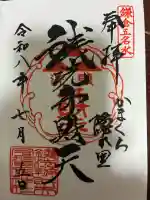 鎌倉五名水
奉拝
かまくら
隠れ里
銭洗弁財天
令和八年
七月
五日